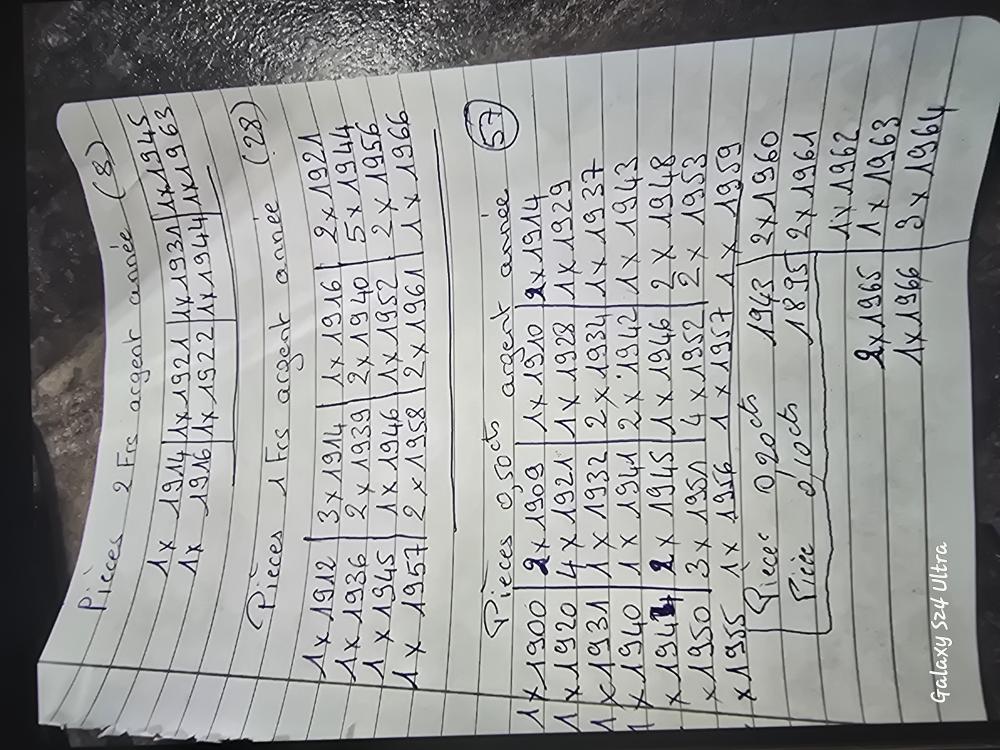 Pièces 2 Frs argent année (8)
1x 1914 1x1921 1x1931 1x1945
1x 1916 1x1922 1x1944 1x1963
Pièces 1 Frs argent année (28)
1x1912 3x1914 1x1916 2x1921
1x1936 2x1939 2x1940 5x1944
1x1945 1x1946 1x1952 2x1956
1x1957 2x1958 2x1961 1x1966
Pièces 0,50cts argent année 57
1x1900 2x1909 1x1910 2x1914
1x1920 4x1921 1x1928 1x1929
1x1931 1x1932 2x1934 1x1937
1x1940 1x1941 2x1942 1x1943
x1944 2x1945 1x1946 2x1948
x1950 3x1951 4x1952 2x1953
x1955 1x1956 1x1957 1x1959
Pièce 0,20cts 1943 2x1960
Pièce 0/10cts 1895 2x1961
1x1962
2x1965 1x1963
1x1966 3x1964
Galaxy S24 Ultra